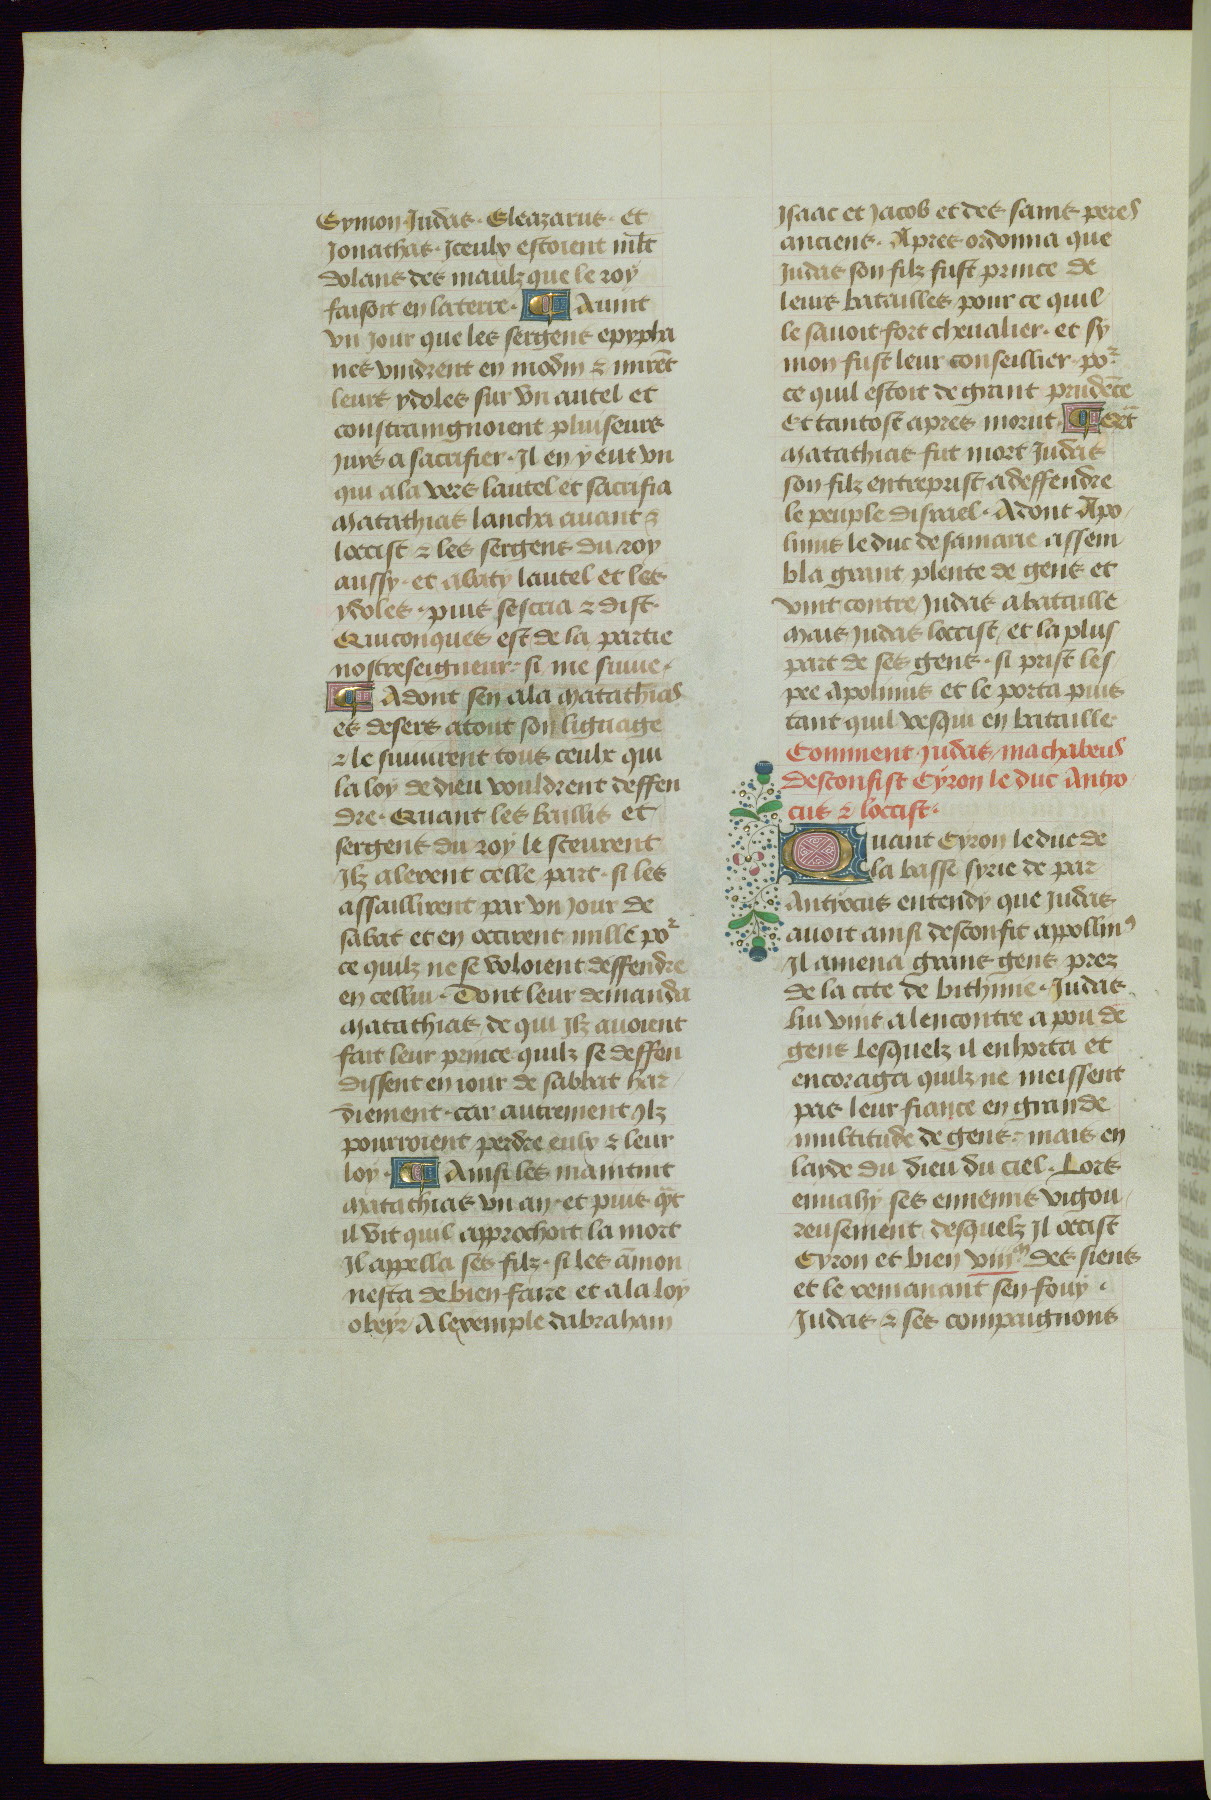 Symon. Judas. Eleazarus. Et
Jonathas. Jceulx estoient ml̅t
dolans des maulz que le roy
faisoit en la terre. ¶ Auint
vn jour que les sergens epypha
nes vindrent en modin ⁊ mirēt
leurs ydoles sur vn autel et
constraingnoient pluiseurs
juifs a sacrifier. Jl en y eut vn
qui ala vers lautel et sacrifia
Matathias lancha auant ⁊
loccist ⁊ les sergens du roy
aussy. et abaty lautel et les
ydoles. puis sescria ⁊ dist.
Quiconques est de la partie
nostreseigneur. si me sieue.
¶ Adont sen ala Matathias
es desers atout son liguage
⁊ le siuuirent tous ceulx qui
la loy de dieu vouldrent deffen
dre. Quant les baillis et
sergens du roy le sceurent
Jlz alerent celle part. si les
assaillirent par vn jour de
sabat et en occirent mille poʳ
ce quilz ne se voloient deffendre
en cellui. Dont leur demanda
Matathias, de qui jlz auoient
fait leur prince quilz se deffen
dissent en iour de sabbat har
diement. car autrement jlz
pourroient perdre eulx ⁊ leur
loy. ¶ Ainsi les maintint
Matathias vn an. et puis qa̅t
il vit quil approchoit la mort
Jl appella ses filz. si les āmon
nesta de bien faire et a la loy
obeyr A lexemple dabraham
Jsaac et Jacob et des sains peres
anciens. Apres ordonna que
Judas son filz fust prince de
leurs batailles pour ce quil
le sauoit fort cheualier. et sy
mon fust leur conseillier. poʳ
ce quil estoit de grant prudēce
Et tantost apres morut. ¶ Qa̅t
Matathias fut mort Judas
son filz entreprist a deffendre
le peuple disrael. Adont Apo
linus le duc de samarie assem
bla grant plente de gens et
vint contre Judas a bataille
Mais Judas loccist, et la plus
part de ses gens. si prist les
pee Apolinus et le porta puis
tant quil vesqui en bataille
Comment Judas machabeus
desconfist Cyron le duc Antio
cus ⁊ loccist.
Quant Cyron le duc de
la basse syrie de par
Antiocus entendy que Judas
auoit ainsi desconfit appollinꝰ
Jl amena grans gens prez
de la cite de bithime. Judas
lui vint alencontre a pou de
gens Lesquelz il enhorta et
encoraga quilz ne meissent
pas leur fiance en grande
multitude de gens. mais en
laide du dieu du ciel. Lors
enuahy ses ennemis vigou
reusement, desquelz Jl occist
Cyron et bien viiiᵐ. des siens
et le remanant sen fouy.
Judas ⁊ ses compaignons